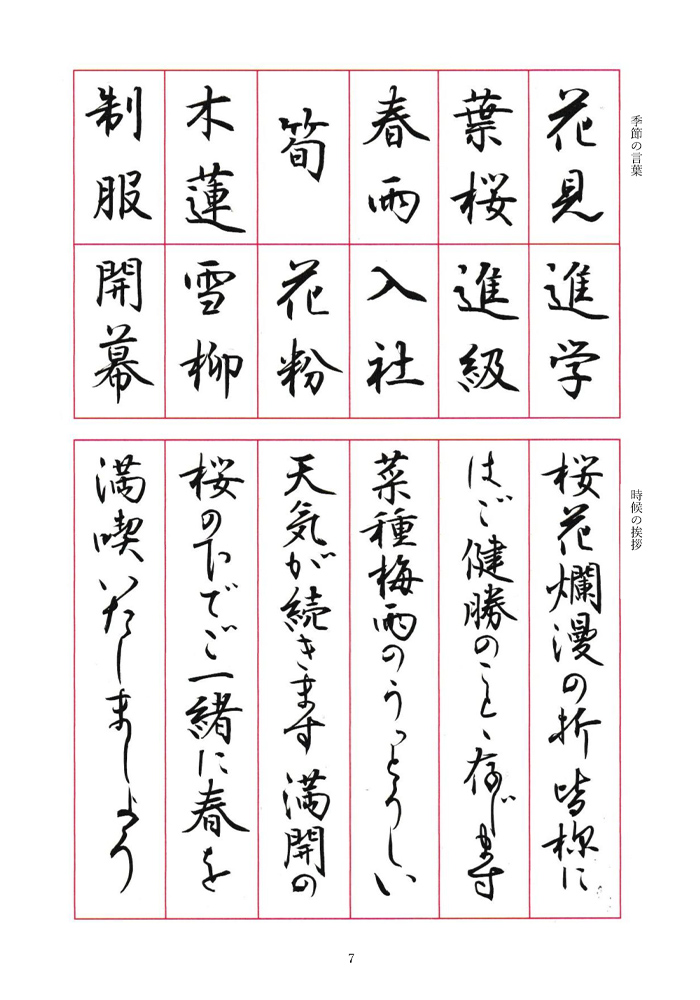 季節の言葉
花見
葉桜
春雨
筍
木蓮
制服
進学
進級
入社
花粉
雪柳
開幕
時候の挨拶
桜花爛漫の折皆様に
はご健勝のことゝ存じます
菜種梅雨のうっとうしい
天気が続きます満開の
桜の下でご一緒に春を
満喫いたしましょう
7